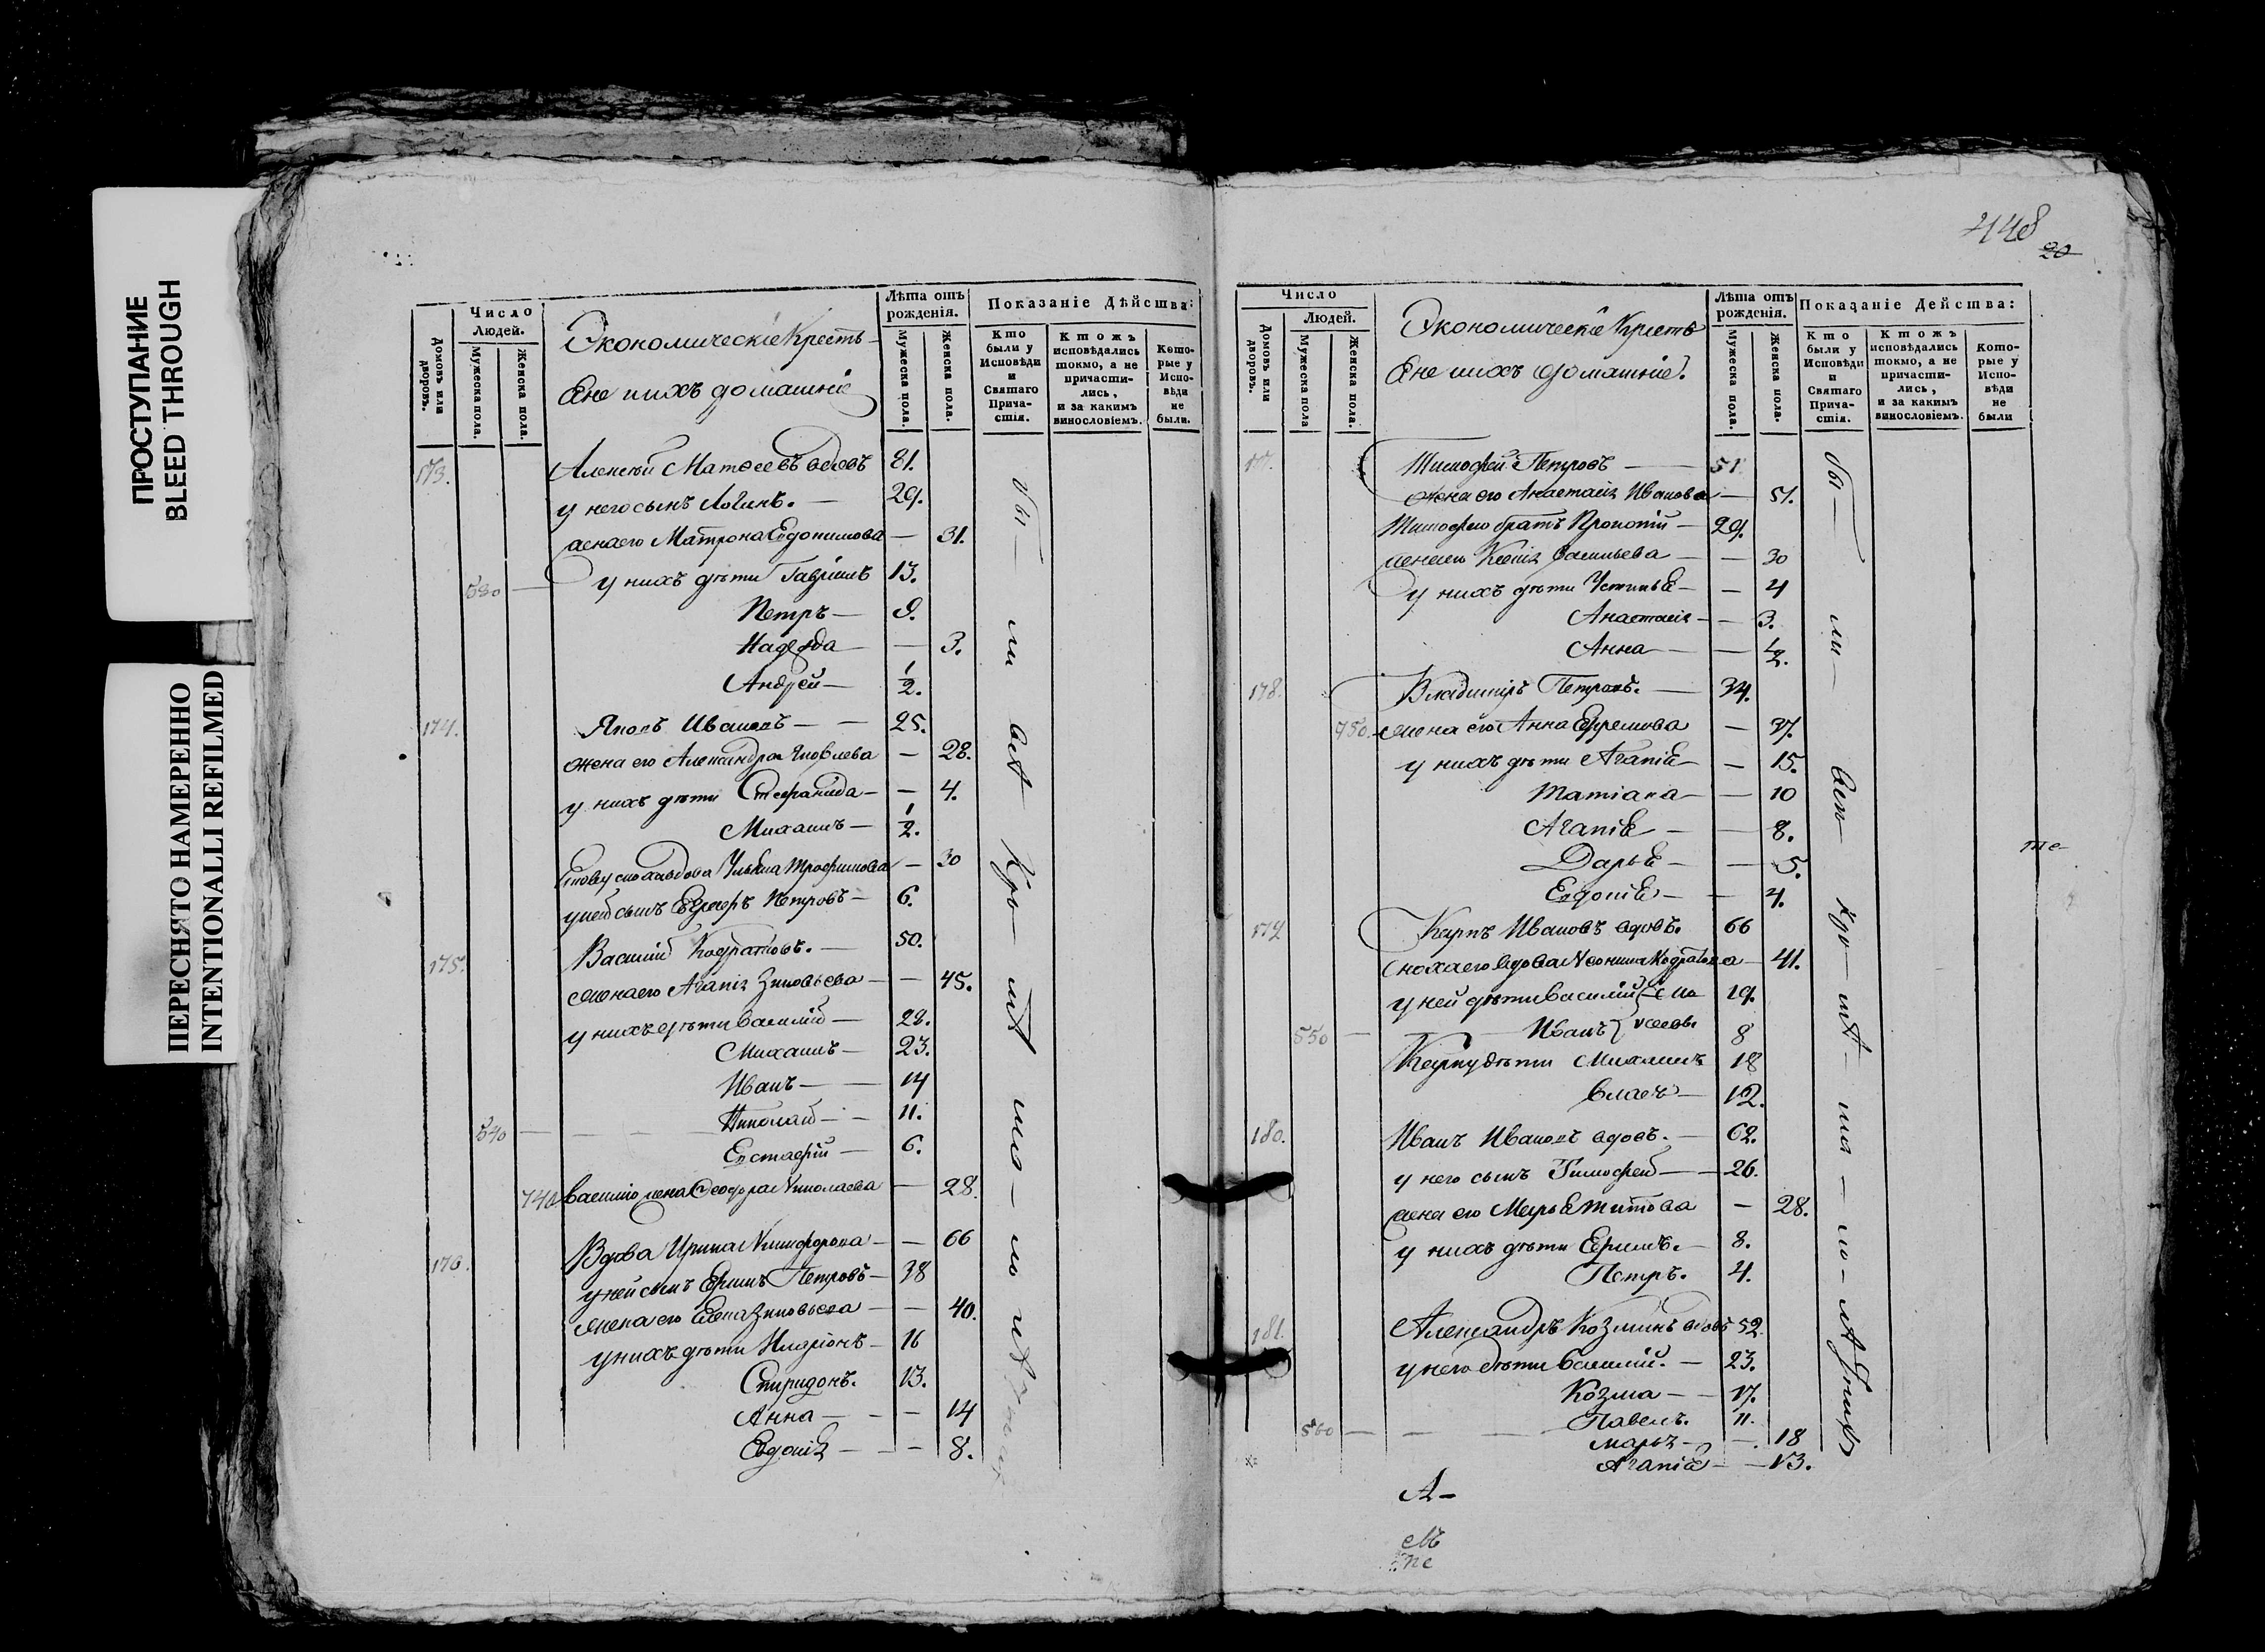 ПРОСТУПАНИЕ
BLEED THROUGH
ПЕРЕСНЯТО НАМЕРЕННО
INTENTIONALLI REFILMED
Число
Людей.
Домовъ или дворовъ.
Мужеска пола.
Женска пола.
Экономическіе Кресть-
яне и ихъ домашніе
Лѣта отъ рожденія.
Мужеска пола.
Женска пола.
Показаніе Дѣйства:
Кто были у Исповѣди и Святаго Прича-стія.
Ктожъ исповѣдались токмо, а не причасти-лись, и за какимъ винословіемъ.
Кото-рые у Испо-вѣди не были.
173. Алексий Матвеевъ вдовъ 81.
у него сынъ Логинъ. — 29.
жена его Матрона Евдокимова — 31.
530 — у нихъ дѣти Гавріилъ 13.
Петръ — 9.
Надежда — 3.
Андрей — 1/2.
174. Яковъ Ивановъ — — 25.
жена его Александра Яковлева — 28.
у нихъ дѣти Стефанида — — 4.
Михаилъ — 1/2.
вдова Ульяна Трофимова — 30
у ней сынъ Егоръ Петровъ — 6.
175. Василий Кодратовъ. — 50.
жена его Агапія Зиновьева — — 45.
у нихъ дѣти Василий — 28.
Михаилъ — 23.
Иванъ — — 14
Николай — — 11.
540 — — — — Евстафій — 6.
740 Василию жена Феодора Николаева — 28.
176. Вдова Ирина Никифорова — — 66
у ней сынъ Ефимъ Петровъ — 38
жена его Елена Зиновьева — — 40.
у нихъ дѣти Иларіонъ — 16
Спиридонъ. 13.
Анна — — — 14
Евдокія — — 8.
бы — ли всѣ Кро — мѣ ма — ло лѣтнихъ
448
20
Число
Людей.
Домовъ или дворовъ.
Мужеска пола
Женска пола.
Экономическіе Кресть
яне и ихъ домашніе.
Лѣта отъ рожденія.
Мужеска пола.
Женска пола.
Показаніе Действа:
Кто были у Исповѣди и Святаго Прича-стія.
Ктожъ исповѣдались токмо, а не причасти-лись, и за какимъ винословіемъ.
Кото-рые у Испо-вѣди не были
177. Тимофей Петровъ — 51.
жена его Анастасія Иванова — 51.
Тимофею братъ Прокопий — 29.
жена его Ксенія Васильева — — 30
у нихъ дѣти Устинья — — 4
Анастасія — — 3.
Анна — — 1/2.
178. Владиміръ Петровъ. — 34.
750. жена его Анна Ефремова — 37.
у нихъ дѣти Агапія — — 15.
Татіана — — 10
Агапія — — 8.
Дарья — — 5.
Евдокія — — 4.
те-
179 Карпъ Ивановъ вдовъ. 66
Сноха его вдова Неонила Кодратова — 41.
у ней дѣти Василий 19.
550 — Иванъ 8
Карпу дѣти Михаилъ 18
Власъ — 12.
180. Иванъ Ивановъ вдовъ. — 62.
у него сынъ Тимофей — — 26.
жена его Марья Титова — 28.
у нихъ дѣти Ефимъ. — 8.
Петръ. 4.
181. Александръ Козминъ вдовъ 52.
у него дѣти Василий. — 23.
Козма — — 17.
560 — — — — Павелъ. 11.
Марья — — 18
Агапія — — 13.
бы — ли — всѣ — Кро — мѣ — ма — ло — лѣтнихъ
А —